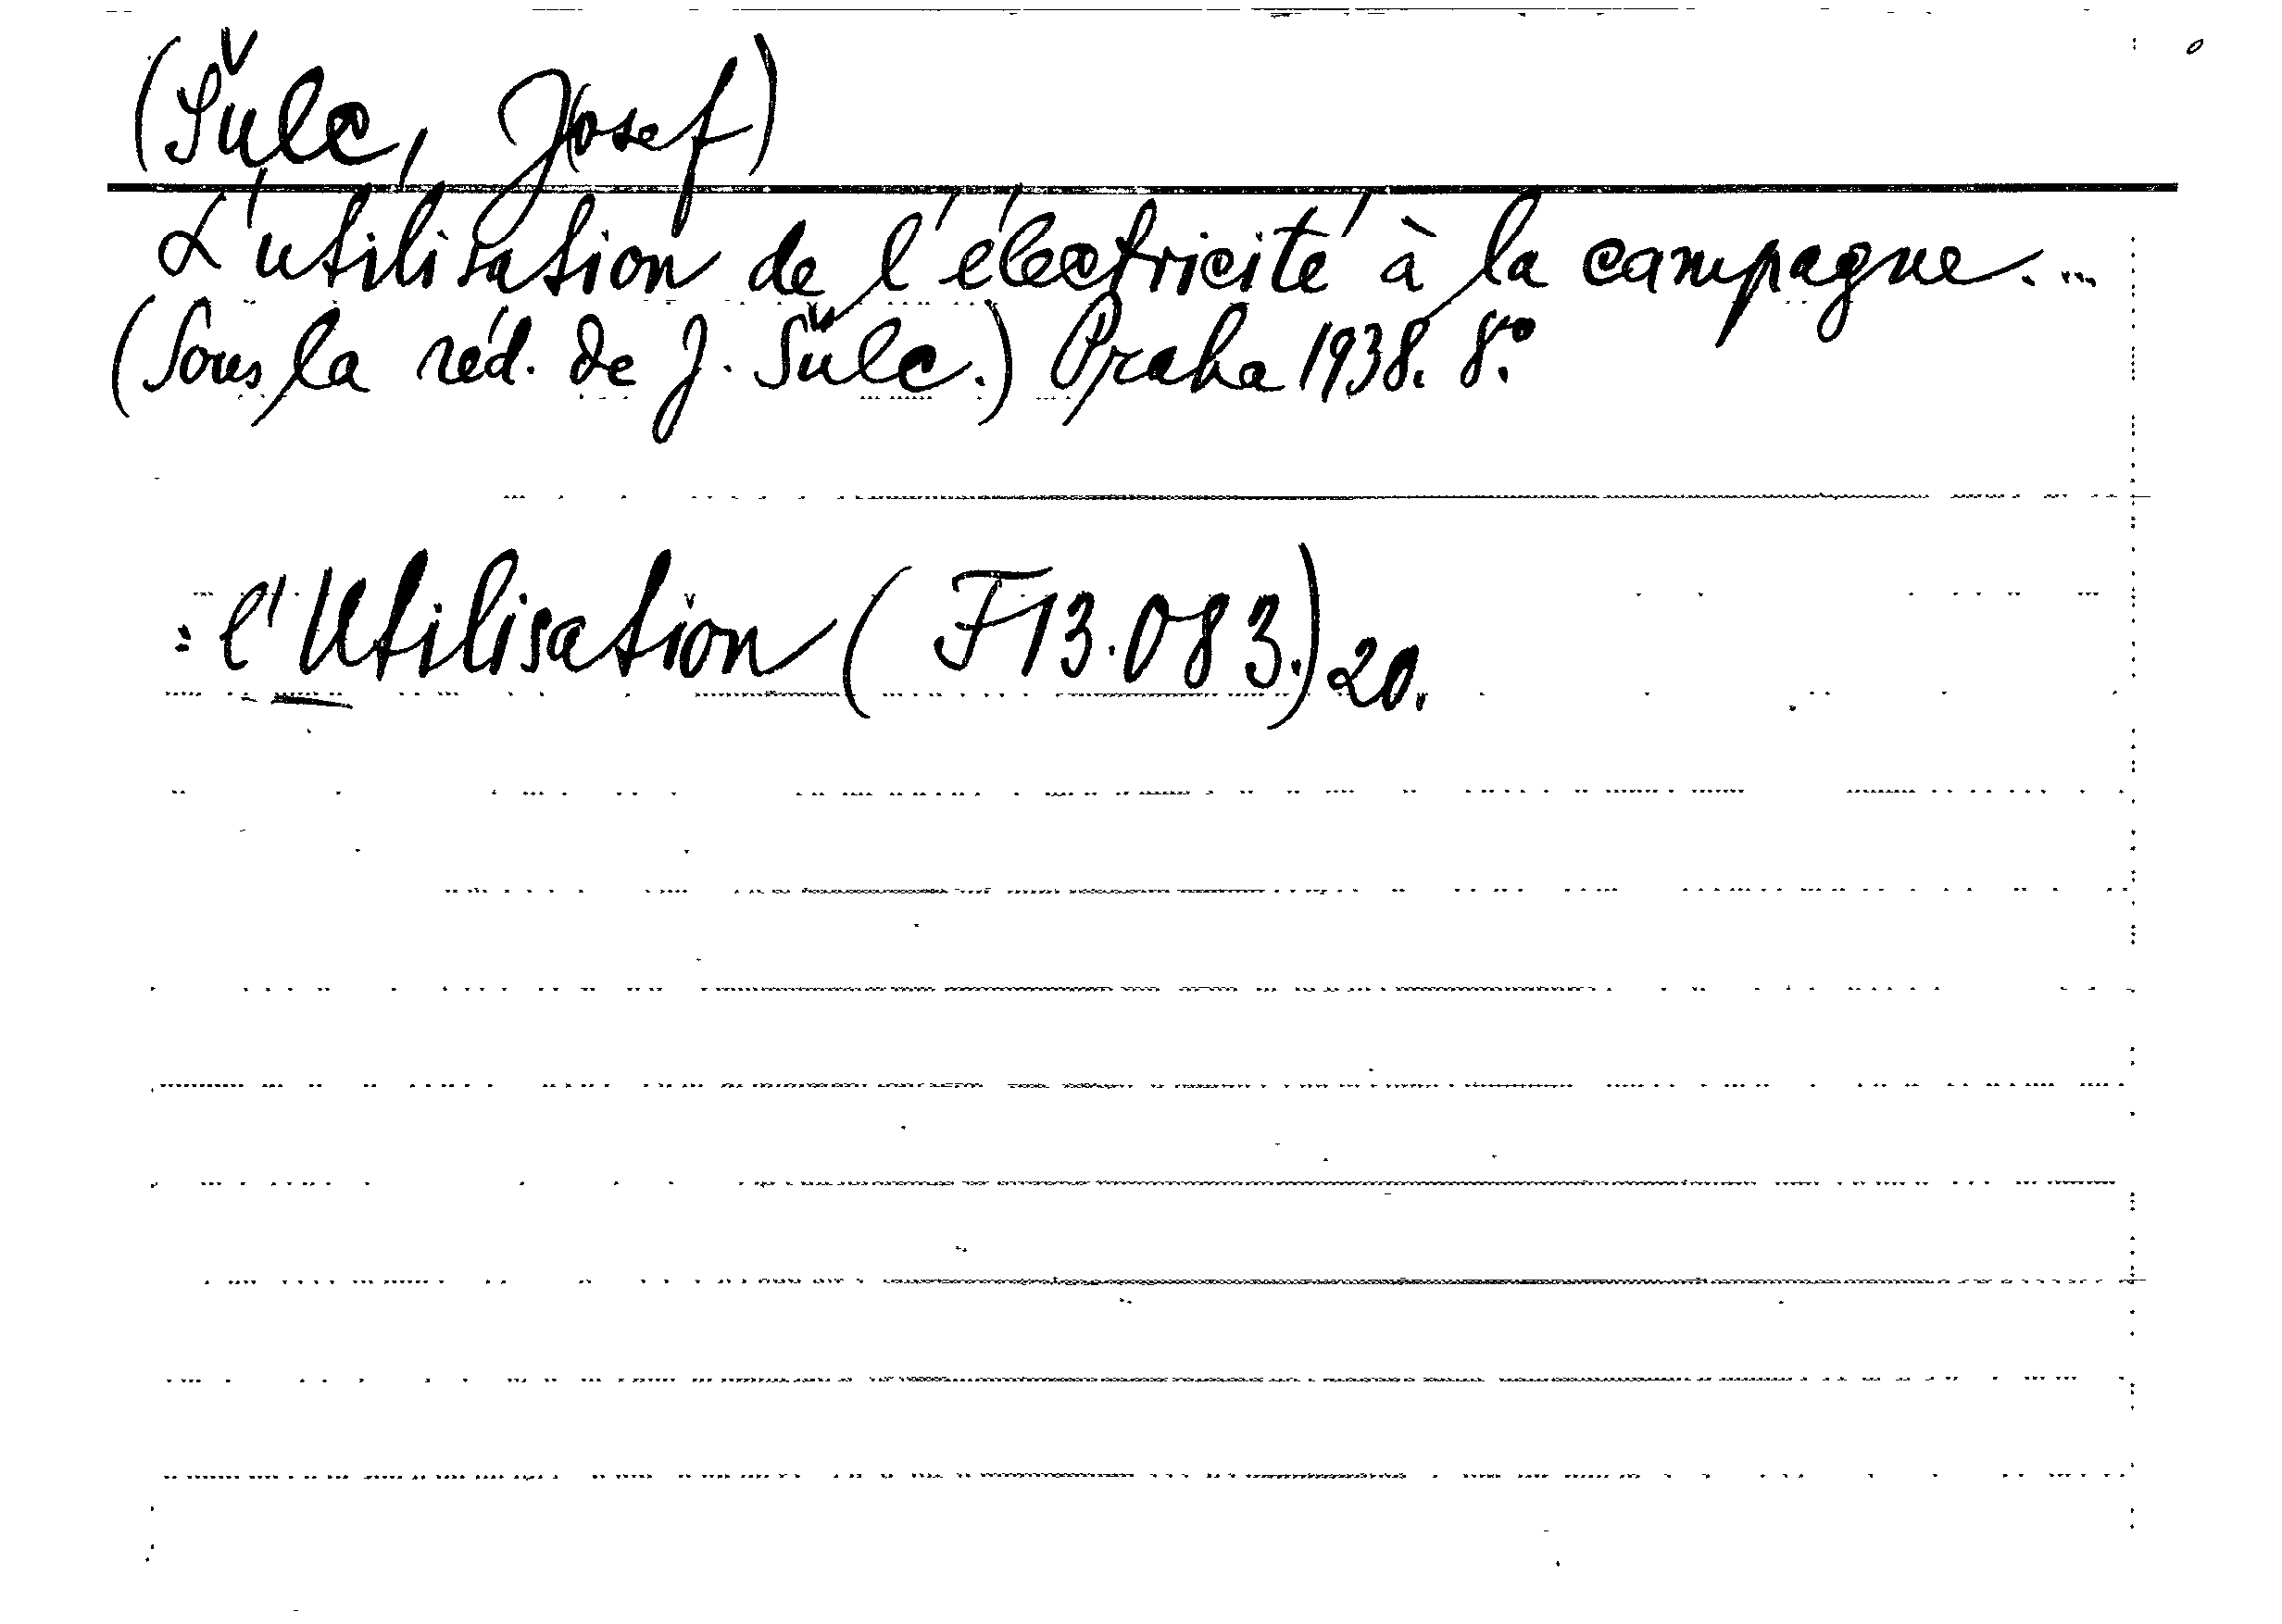 (Šulc, Josef)
L'utilisation de l'électricité à la campagne. ...
(Sous la réd. de J. Šulc.) Praha 1938. 8°.
: l'Utilisation (F13.083.) 20.